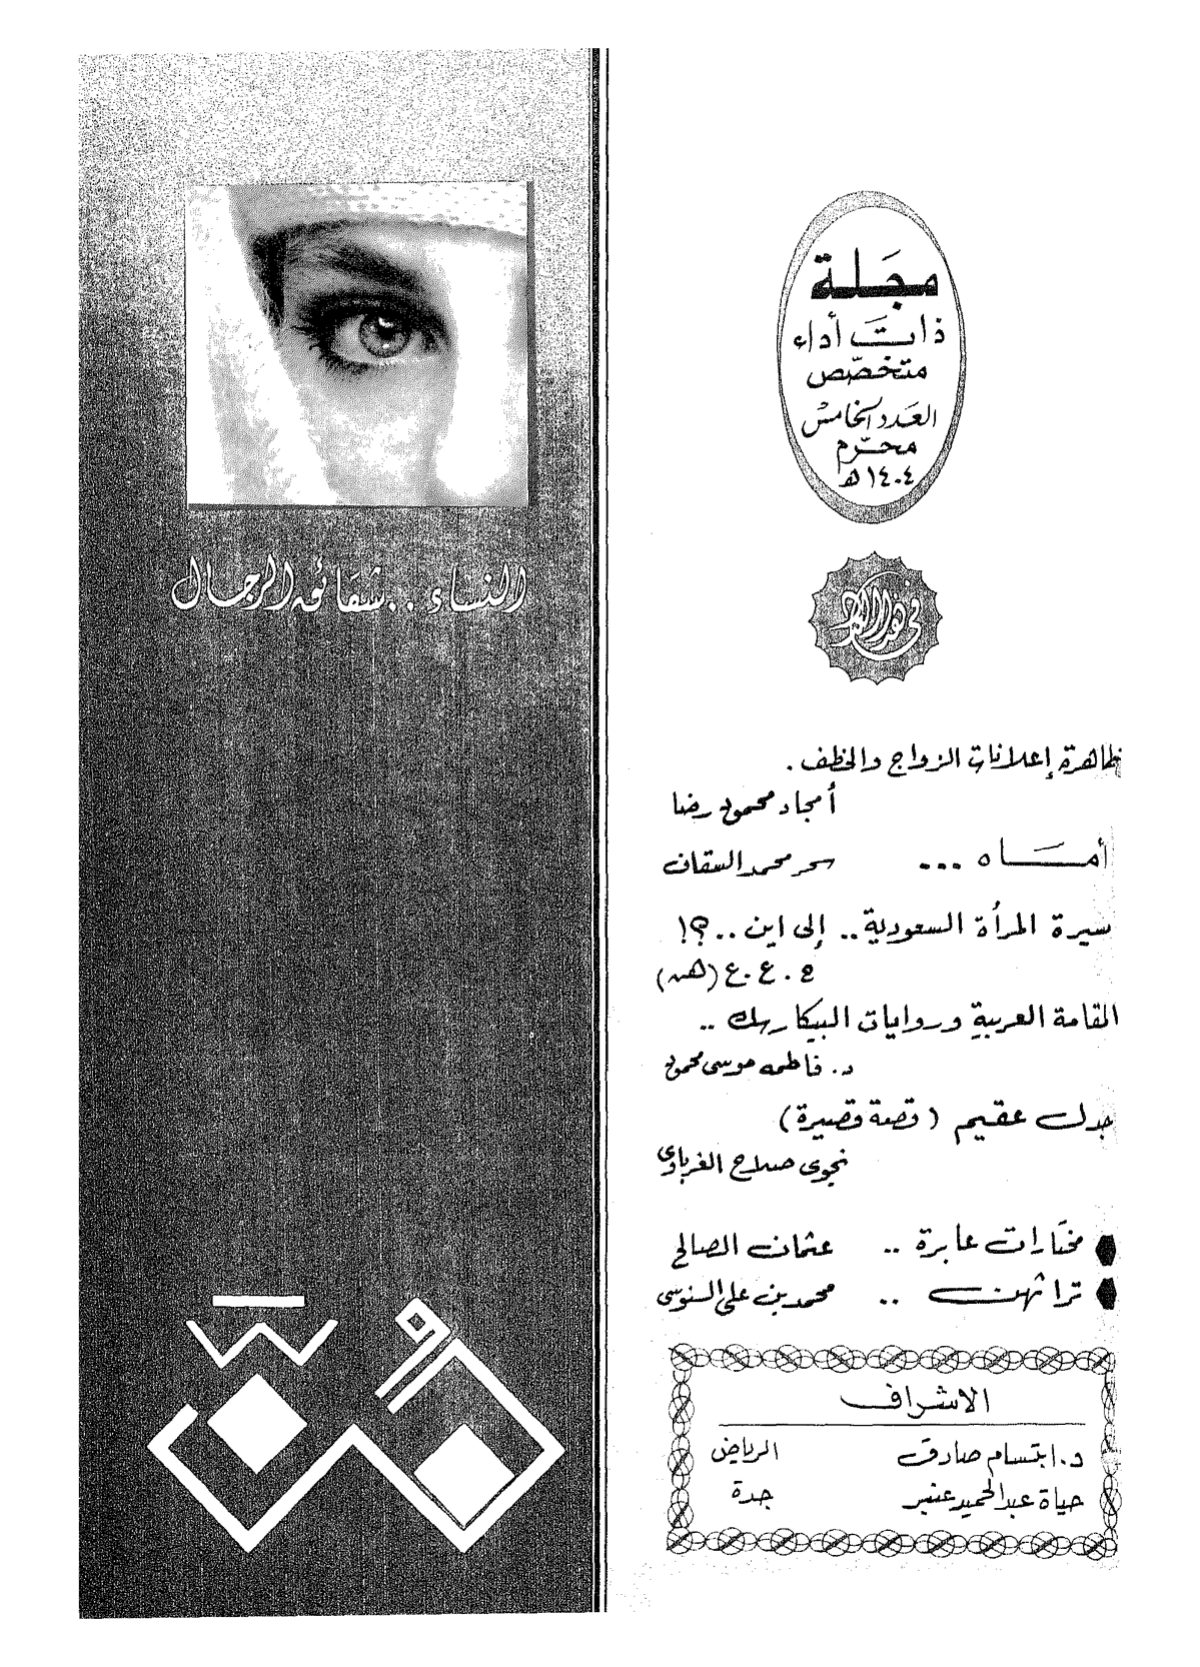 مجَلة
ذات أداء
متخصّص
العَدد الخامسْ
محَرّم
١٤٠٤ هـ
في هذا العدد
ظاهرة إعلانات الزواج والخطف .
أمجاد محمود رضا
أمَــاه ...
سحر محمد السقاف
سيرة المرأة السعودية .. إلى اين ..؟!
ع . ع (هند)
المقامة العربية وروايات البيكارسك ..
د. فاطمه موسى محمود
جدل عقيم ( قصة قصيرة )
نجوى صلاح الغرباوي
مختارات عابرة .. عثمان الصالح
تراثهن .. محمد بن علي السنوسي
الاشراف
د. ابتسام صادق الرياض
حياة عبدالحميد عنبر جدة
النساء .. شقائق الرجال
هُنَّ